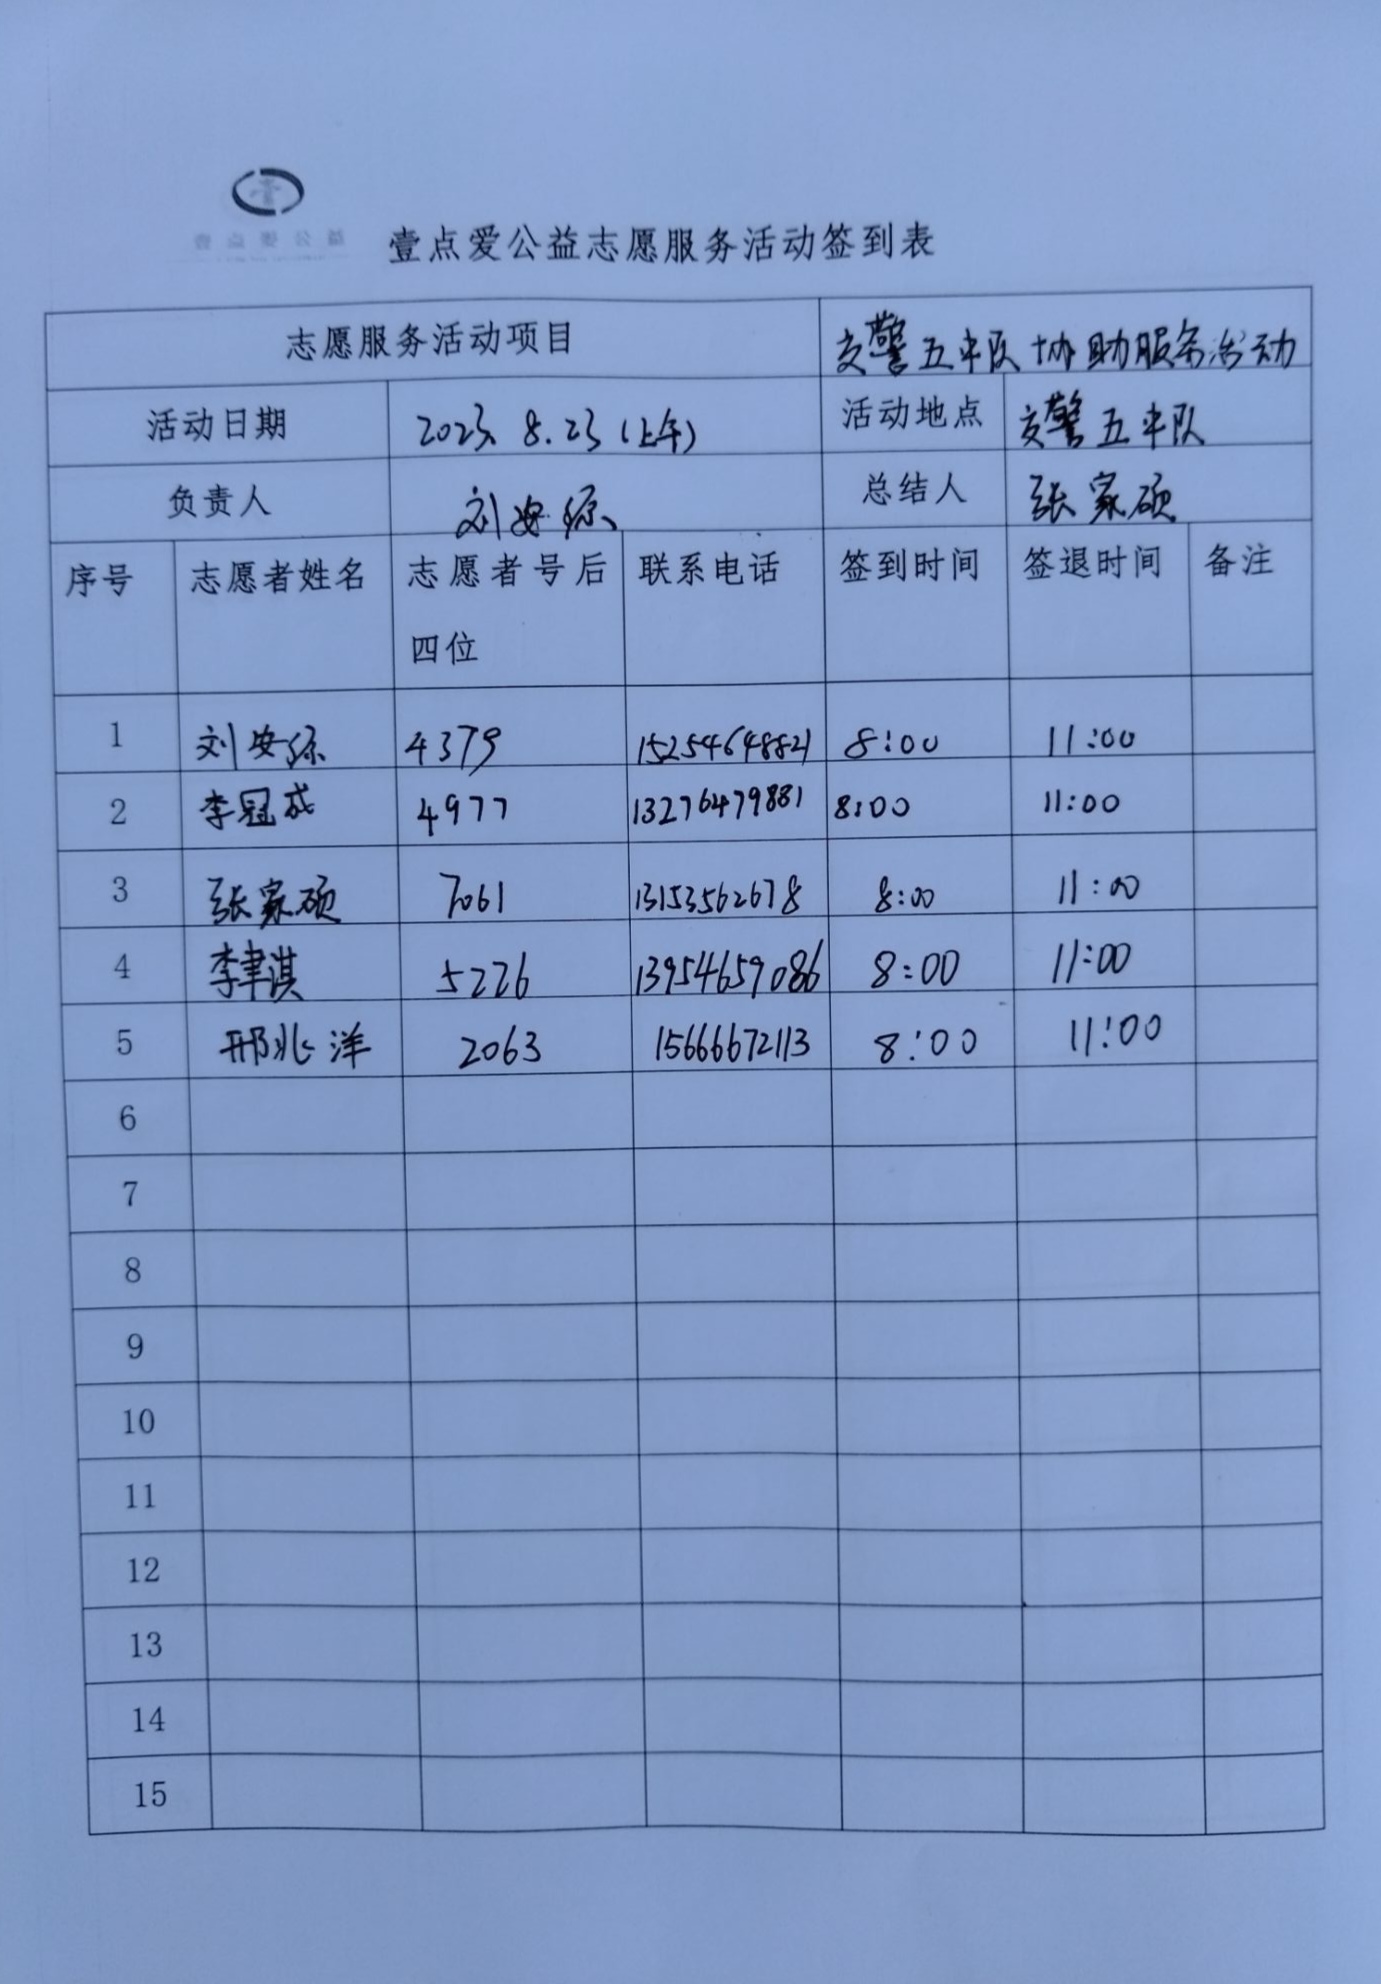 壹点爱公益志愿服务活动签到表
志愿服务活动项目 交警五中队协助服务活动
活动日期 2023.8.23(上午) 活动地点 交警五中队
负责人 刘安 总结人 张家硕
序号 志愿者姓名 志愿者号后四位 联系电话 签到时间 签退时间 备注
1 刘安 4379 15254648821 8:00 11:00
2 李冠成 4977 13276479881 8:00 11:00
3 张家硕 7061 13153562678 8:00 11:00
4 李聿淇 5226 13954659086 8:00 11:00
5 邢兆洋 2063 15666672113 8:00 11:00
6
7
8
9
10
11
12
13
14
15